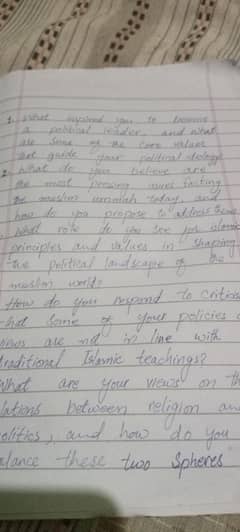 1. What inspired you to become
a political leader, and what
are some of the core values
that guide your political ideology
2. What do you believe are
the most pressing issues facing
the muslim ummah today, and
how do you propose to address them
What role do you see for islamic
principles and values in shaping
the political landscape of the
muslim world?
How do you respond to critics
that some of your policies
views are not in line with
traditional Islamic teachings?
What are your views on th
lations between religion an
olitics, and how do you
alance these two spheres